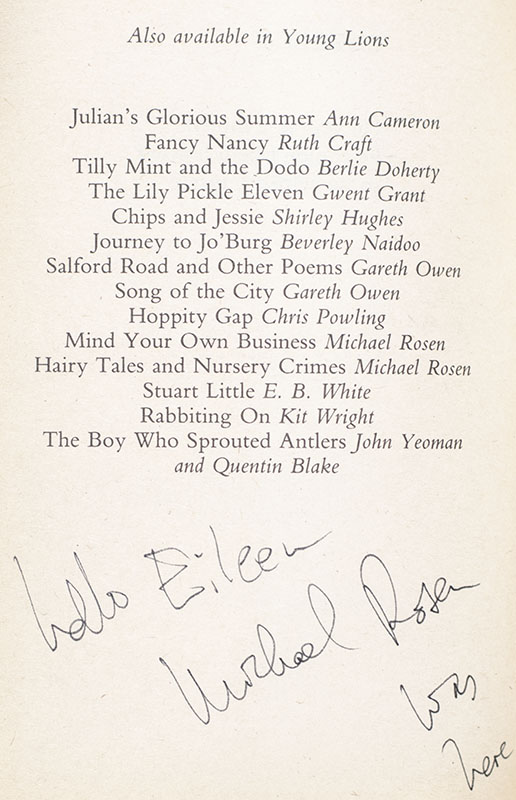 Also available in Young Lions
Julian's Glorious Summer Ann Cameron
Fancy Nancy Ruth Craft
Tilly Mint and the Dodo Berlie Doherty
The Lily Pickle Eleven Gwent Grant
Chips and Jessie Shirley Hughes
Journey to Jo'Burg Beverley Naidoo
Salford Road and Other Poems Gareth Owen
Song of the City Gareth Owen
Hoppity Gap Chris Powling
Mind Your Own Business Michael Rosen
Hairy Tales and Nursery Crimes Michael Rosen
Stuart Little E. B. White
Rabbiting On Kit Wright
The Boy Who Sprouted Antlers John Yeoman
and Quentin Blake
Hello Eileen
Michael Rosen
was
here